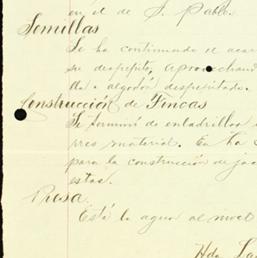 en el de S. Pablo.
Semillas
Se ha continuado el acar
su despepite, aprovechand
da algodón despepitado.
Construcción de Fincas
Se terminó de enladrillar
rres material. En Ha
para la construcción de jac
estas.
Presa
Está la agua al nivel
Hda